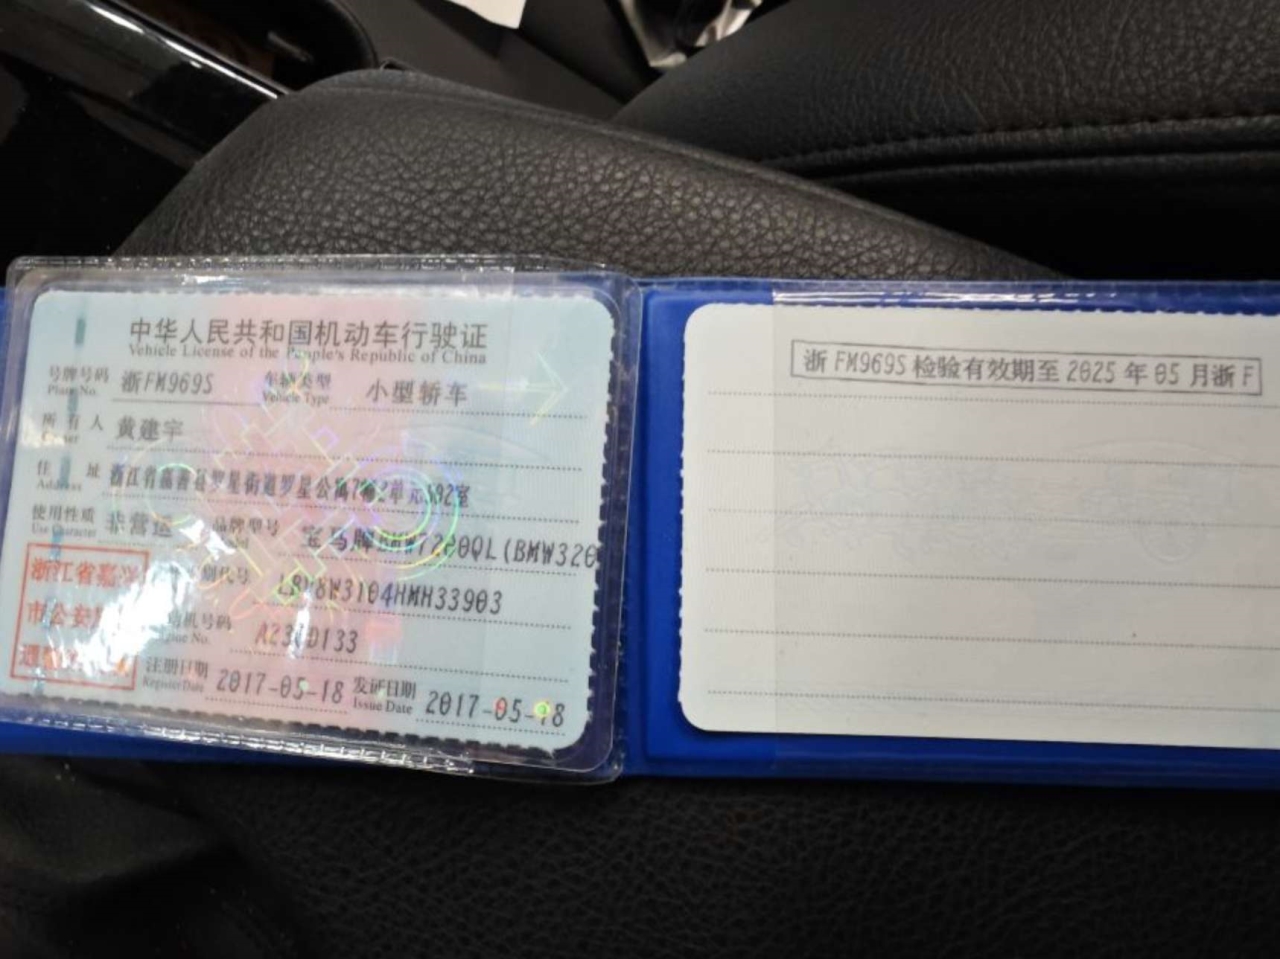 中华人民共和国机动车行驶证
Vehicle License of the People's Republic of China
号牌号码 浙FM969S 车辆类型 小型轿车
Plate No. Vehicle Type
所有人 黄建宇
Owner
住址 浙江省嘉善县罗星街道罗星公寓7幢2单元502室
Address
使用性质 非营运 品牌型号 宝马牌BMW7200QL(BMW320
Use Character
别代号 3104HMH33903
机号码 D133
Engine No.
注册日期 2017-05-18 发证日期 2017-05-18
Register Date Issue Date
浙江省嘉兴
市公安
浙FM969S检验有效期至2025年05月浙F